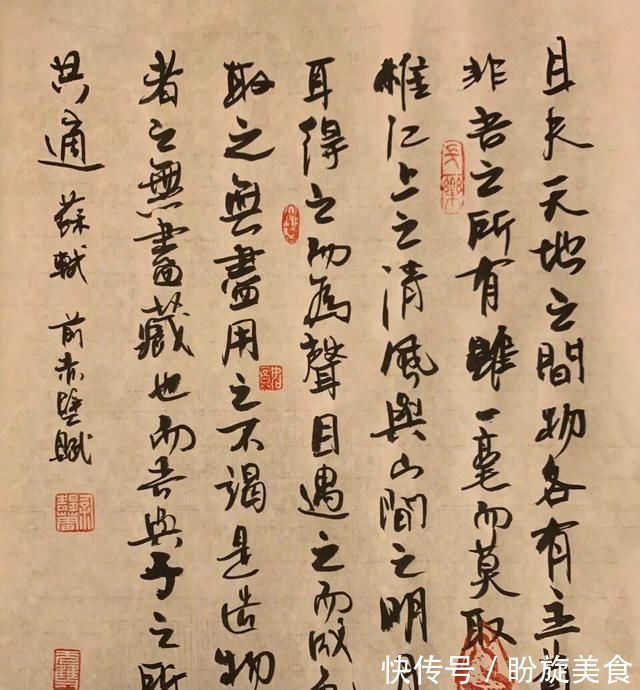 且夫天地之間物各有主苟
非吾之所有雖一毫而莫取
惟江上之清風與山間之明月
耳得之而為聲目遇之而成色
取之無盡用之不竭是造物
者之無盡藏也而吾與子之所
共適 蘇軾 前赤壁賦
快传号/盼旋美食